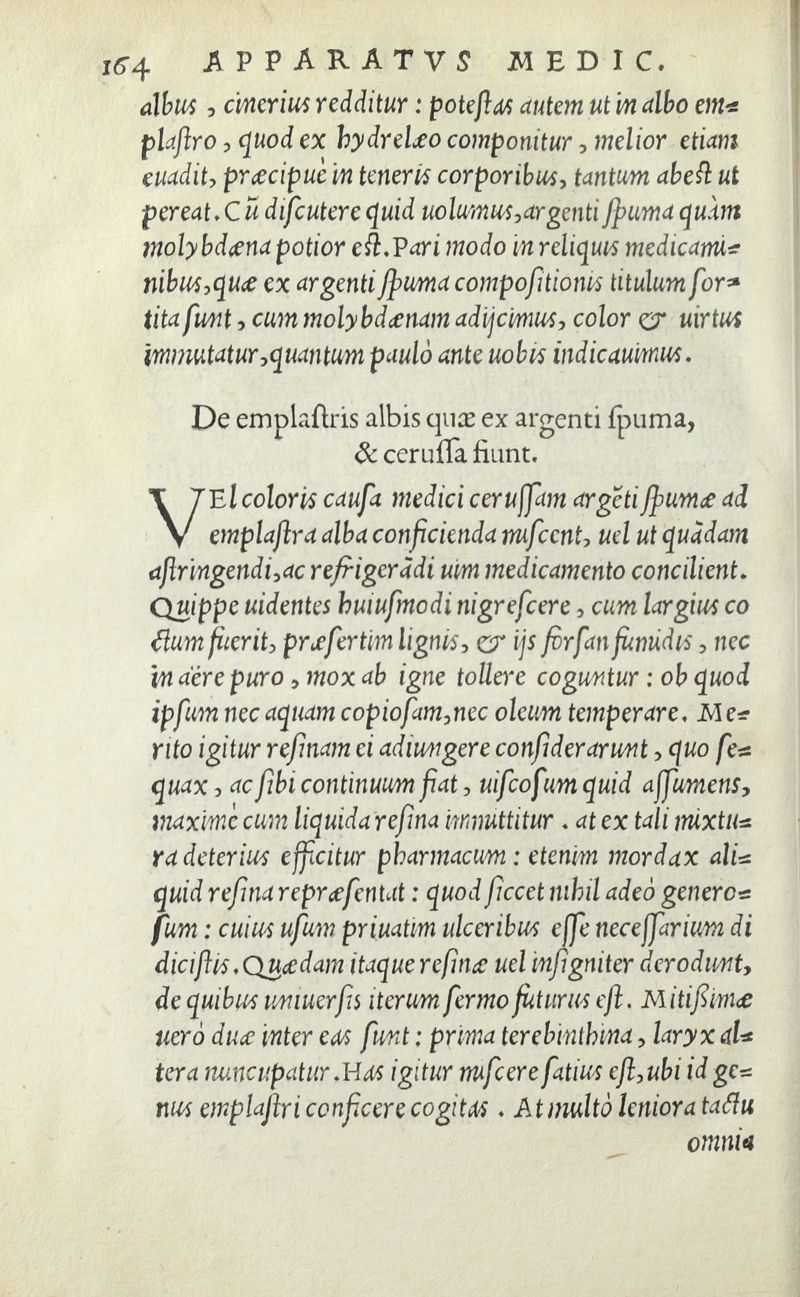 164 APPARATVS MEDIC.
albus , cinerius redditur : potestas autem ut in albo em=
plastro , quod ex hydrelæo componitur , melior etiam
euadit, præcipuè in teneris corporibus, tantum abest ut
pereat. Cū discutere quid uolumus,argenti spuma quàm
molybdæna potior est.Pari modo in reliquis medicami=
nibus,quæ ex argenti spuma compositionis titulum sor=
tita sunt , cum molybdænam adijcimus, color & uirtus
immutatur,quantum paulò ante uobis indicauimus.
De emplastris albis quæ ex argenti spuma,
& cerussa fiunt.
VEl coloris causa medici cerussam argēti spumæ ad
emplastra alba conficienda miscent, uel ut quādam
astringendi,ac refrigerādi uim medicamento concilient.
Quippe uidentes huiusmodi nigrescere , cum largius co
ctum fuerit, præsertim lignis, & ijs forsan fumidis , nec
in aëre puro , mox ab igne tollere coguntur : ob quod
ipsum nec aquam copiosam,nec oleum temperare. Me=
rito igitur resinam ei adiungere considerarunt , quo se=
quax , ac sibi continuum fiat , uiscosum quid assumens,
maximè cum liquida resina immittitur . at ex tali mixtu=
ra deterius efficitur pharmacum : etenim mordax ali=
quid resina repræsentat : quod siccet nihil adeò genero=
sum : cuius usum priuatim ulceribus esse necessarium di
dicistis.Quædam itaque resinæ uel insigniter derodunt,
de quibus uniuersis iterum sermo futurus est. Mitissimæ
uerò duæ inter eas sunt : prima terebinthina , laryx al=
tera nuncupatur.Has igitur miscere satius est,ubi id ge=
nus emplastri conficere cogitas . At multò leniora tactu
omnia